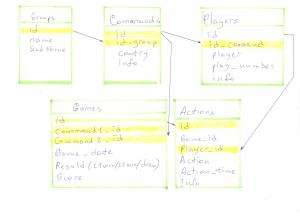 Groups
id
name
Command
id
id_group
Country
Info
Players
id
id_comand
player
play_number
info
Games
id
Command1_id
Command2_id
Game_date
Score
Actions
id
Game_id
Player_id
Action
Action_time
Info